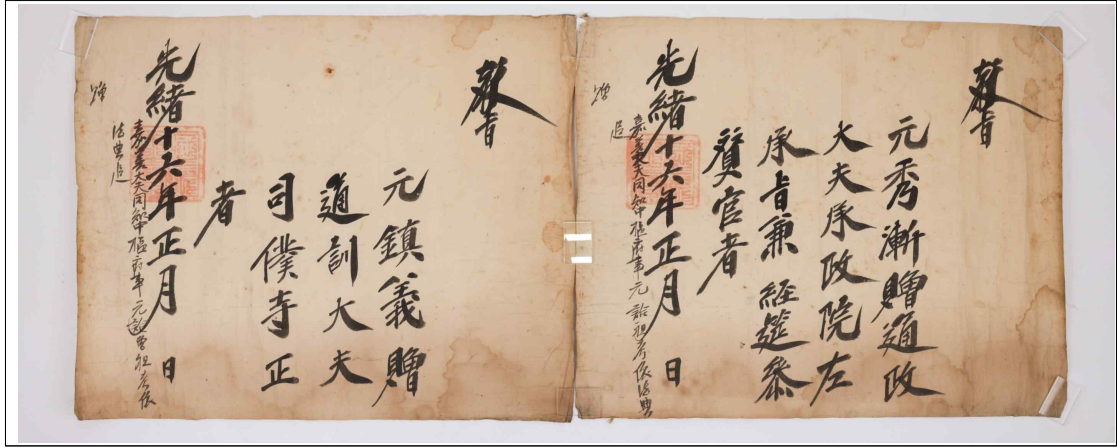 敎旨
元秀漸贈通政
大夫承政院左
承旨兼 經筵參
贊官者
光緖十六年正月 日
嘉義大夫同知中樞府事元 祖考依法典
追
贈
敎旨
元鎭義贈
通訓大夫
司僕寺正
者
光緖十六年正月 日
嘉義大夫同知中樞府事元 曾祖考依
法典追
贈